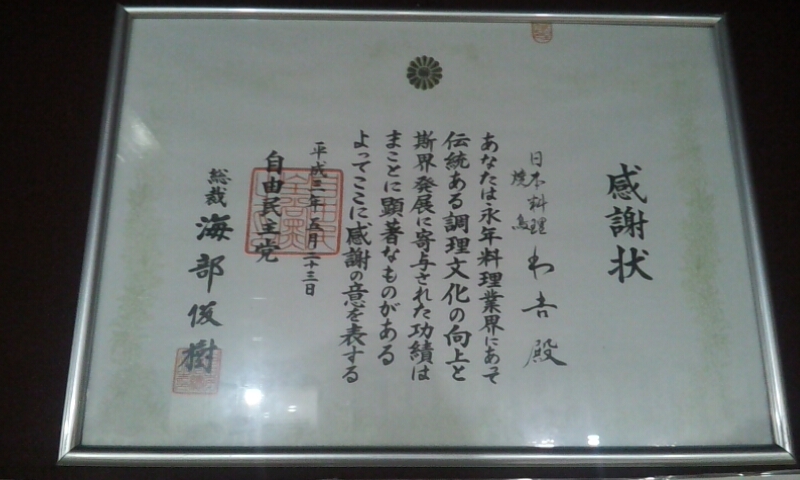 感謝状
日本料理
焼鳥
わ吉殿
あなたは永年料理業界にあって
伝統ある調理文化の向上と
斯界発展に寄与された功績は
まことに顕著なものがある
よってここに感謝の意を表する
平成三年五月二十三日
自由民主党
総裁 海部俊樹